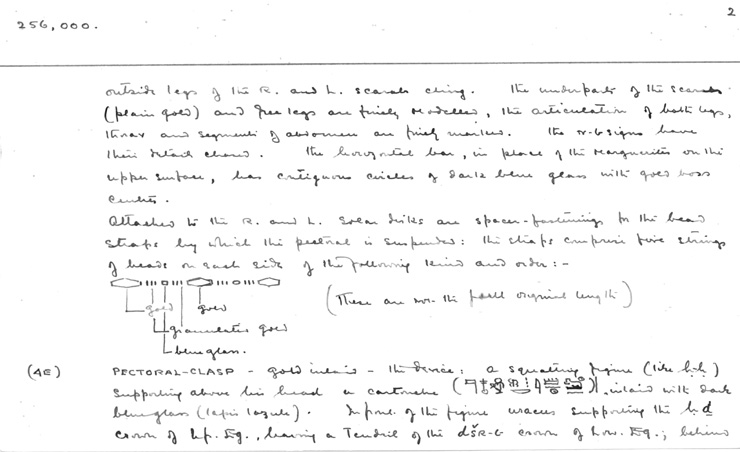 2
256,000.
outside legs of the R. and L. scarab cling. The underparts of the scarabs
(plain gold) and free legs are finely modelled, the articulation of both legs,
thorax and segments of abdomen are finely marked. The signs have
their detail chased. The horizontal bar, in place of the marguerites on the
upper surface, has contiguous circles of dark blue glass with gold boss
centres.
Attached to the R. and L. solar disks are spacer-fastenings for the bead
straps by which the pectoral is suspended: the straps comprise five strings
of beads on each side of the following kind and order:-
gold gold (These are not the full original length)
granulated gold
blue glass.
(4E) PECTORAL-CLASP - gold inlaid - the device: a squatting figure (like)
supporting above his head a cartouche ( ), inlaid with dark
blue glass (lapis lazuli). In front of the figure uraeus supporting the ḥḏ
crown of Up. Eg., leaving a tendril of the dšR-t crown of Low. Eg.; behind